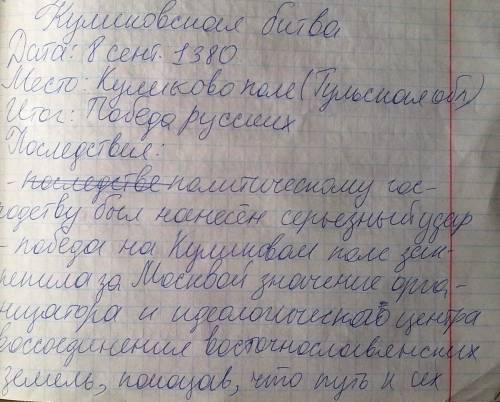 Куликовская битва
Дата: 8 сент. 1380
Место: Куликово поле (Тульская обл)
Итог: Победа русских
Последствия:
- последстве политическому гос-
подству был нанесён серьезный удар
- победа на Куликовом поле зак-
репила за Москвой значение орга-
низатора и идеологического центра
воссоединения восточнославянских
земель, показав, что путь к их